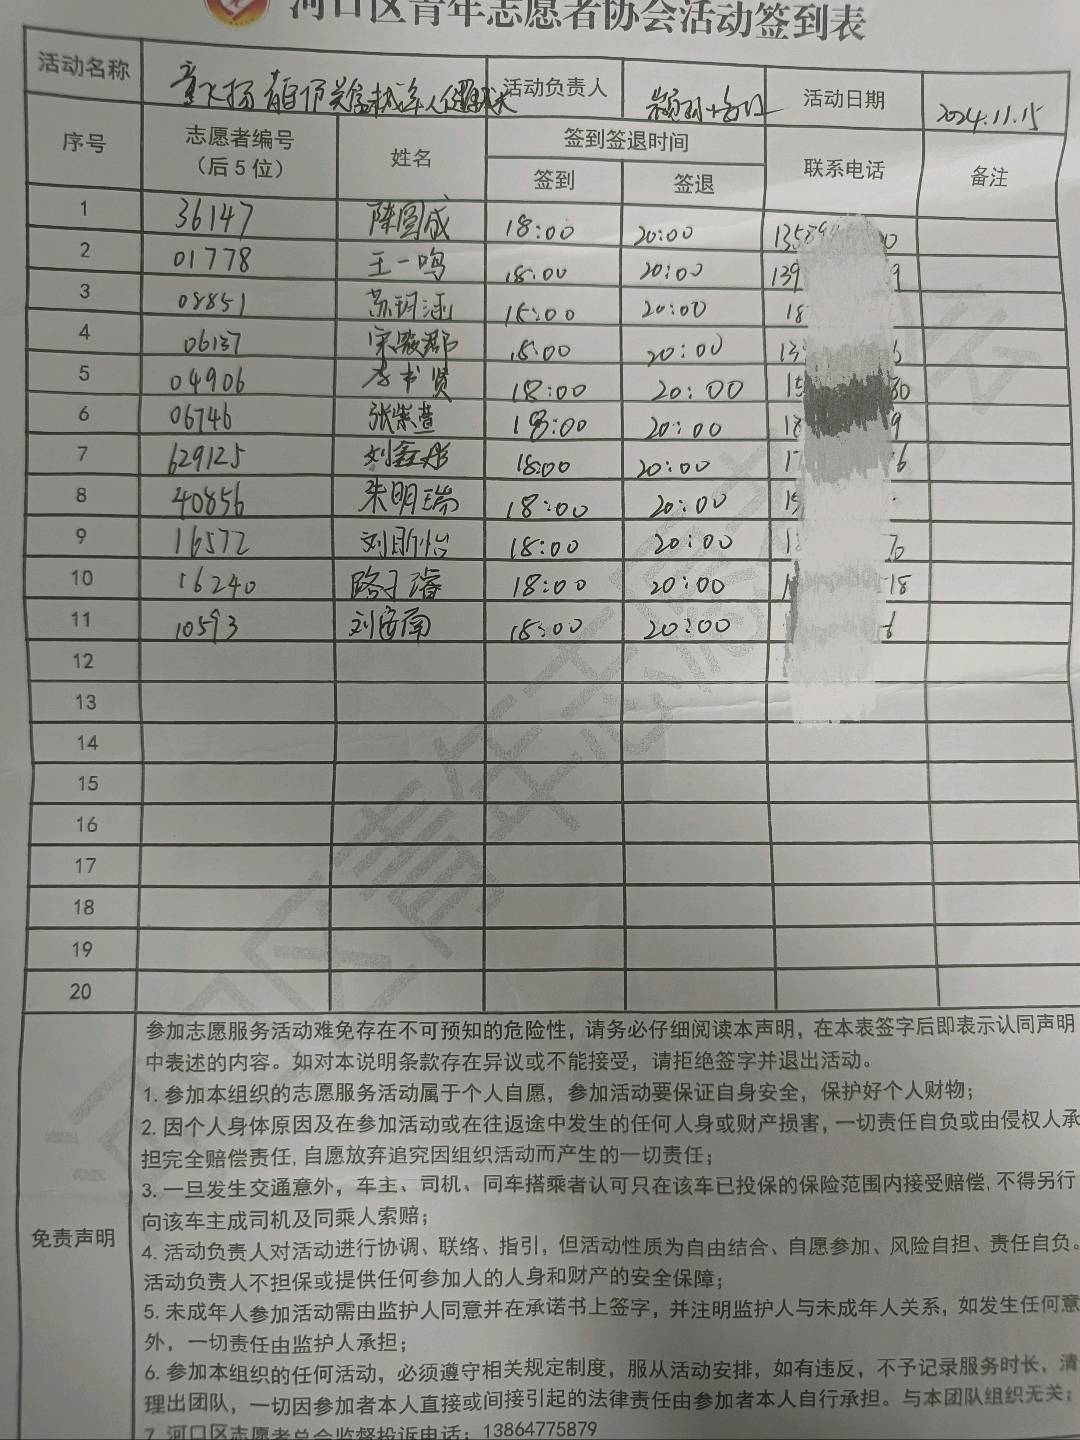 河口区青年志愿者协会活动签到表
活动名称 童飞扬 活动负责人 活动日期 2024.11.15
序号 志愿者编号（后5位） 姓名 签到签退时间 联系电话 备注
签到 签退
1 36147 陈国成 18:00 20:00
2 01778 王一鸣 18:00 20:00
3 08851 苏玥涵 18:00 20:00
4 06137 18:00 20:00
5 04906 李书贤 18:00 20:00
6 06746 张紫萱 18:00 20:00
7 629125 刘鑫彤 18:00 20:00
8 40856 朱明瑞 18:00 20:00
9 16572 刘昕怡 18:00 20:00
10 16240 路子睿 18:00 20:00
11 10593 刘安南 18:00 20:00
12
13
14
15
16
17
18
19
20
免责声明
参加志愿服务活动难免存在不可预知的危险性，请务必仔细阅读本声明，在本表签字后即表示认同声明
中表述的内容。如对本说明条款存在异议或不能接受，请拒绝签字并退出活动。
1. 参加本组织的志愿服务活动属于个人自愿，参加活动要保证自身安全，保护好个人财物；
2. 因个人身体原因及在参加活动或在往返途中发生的任何人身或财产损害，一切责任自负或由侵权人承
担完全赔偿责任, 自愿放弃追究因组织活动而产生的一切责任；
3. 一旦发生交通意外，车主、司机、同车搭乘者认可只在该车已投保的保险范围内接受赔偿, 不得另行
向该车主成司机及同乘人索赔；
4. 活动负责人对活动进行协调、联络、指引，但活动性质为自由结合、自愿参加、风险自担、责任自负。
活动负责人不担保或提供任何参加人的人身和财产的安全保障；
5. 未成年人参加活动需由监护人同意并在承诺书上签字，并注明监护人与未成年人关系，如发生任何意
外，一切责任由监护人承担；
6. 参加本组织的任何活动，必须遵守相关规定制度，服从活动安排，如有违反，不予记录服务时长，清
理出团队，一切因参加者本人直接或间接引起的法律责任由参加者本人自行承担。与本团队组织无关；
7. 河口区志愿者总会监督投诉电话：13864775879
河口区青年志愿者协会